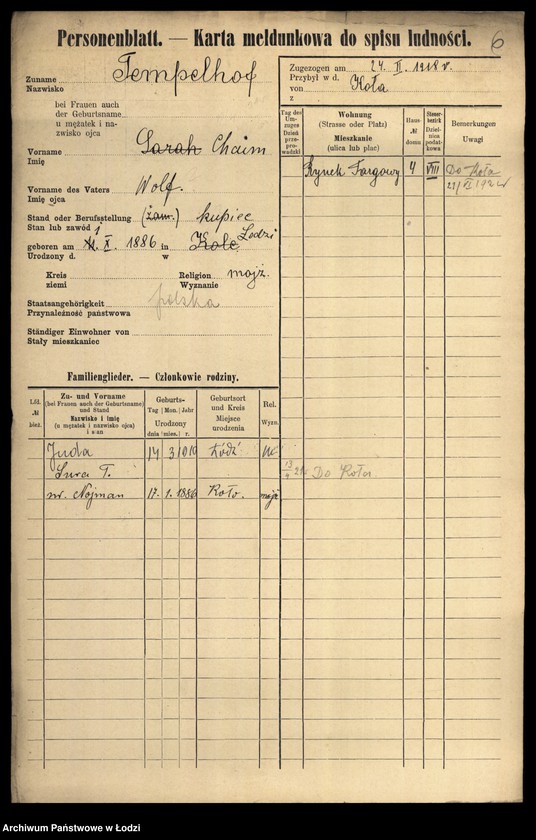 Personenblatt. — Karta meldunkowa do spisu ludności.
6
Zuname Tempelhof
Nazwisko
bei Frauen auch
der Geburtsname
u mężatek i na-
zwisko ojca
Vorname Sarah Chaim
Imię
Vorname des Vaters Wolf.
Imię ojca
Stand oder Berufsstellung (żam.) kupiec
Stan lub zawód
geboren am X. 1886 in Kole Łodzi
Urodzony d. w
Kreis
ziemi
Religion mojż.
Wyznanie
Staatsangehörigkeit polska
Przynależność państwowa
Ständiger Einwohner von
Stały mieszkaniec
Zugezogen am 24. II. 1918 r.
Przybył w d.
von Koła
z
Tag des Um-zuges Dzień prze-pro-wadzki
Wohnung
(Strasse oder Platz)
Mieszkanie
(ulica lub plac)
Haus № domu
Steuer-bezirk Dziel-nica podat-kowa
Bemerkungen
Uwagi
Rynek Targowy 4 VIII Do Koła
Familienglieder. — Członkowie rodziny.
Lfd. № bież.
Zu- und Vorname
(bei Frauen auch der Geburtsname)
und Stand
Nazwisko i imię
(u mężatek i nazwisko ojca)
i stan
Geburts-
Tag Mon. Jahr
Urodzony
dnia mies. r.
Geburtsort
und Kreis
Miejsce
urodzenia
Rel.
Wyzn.
Juda 14 3 1910 Łódź
Sura T. Do Koła
nr. Nojman 17. 1. 1886 Koło. mojż
Archiwum Państwowe w Łodzi